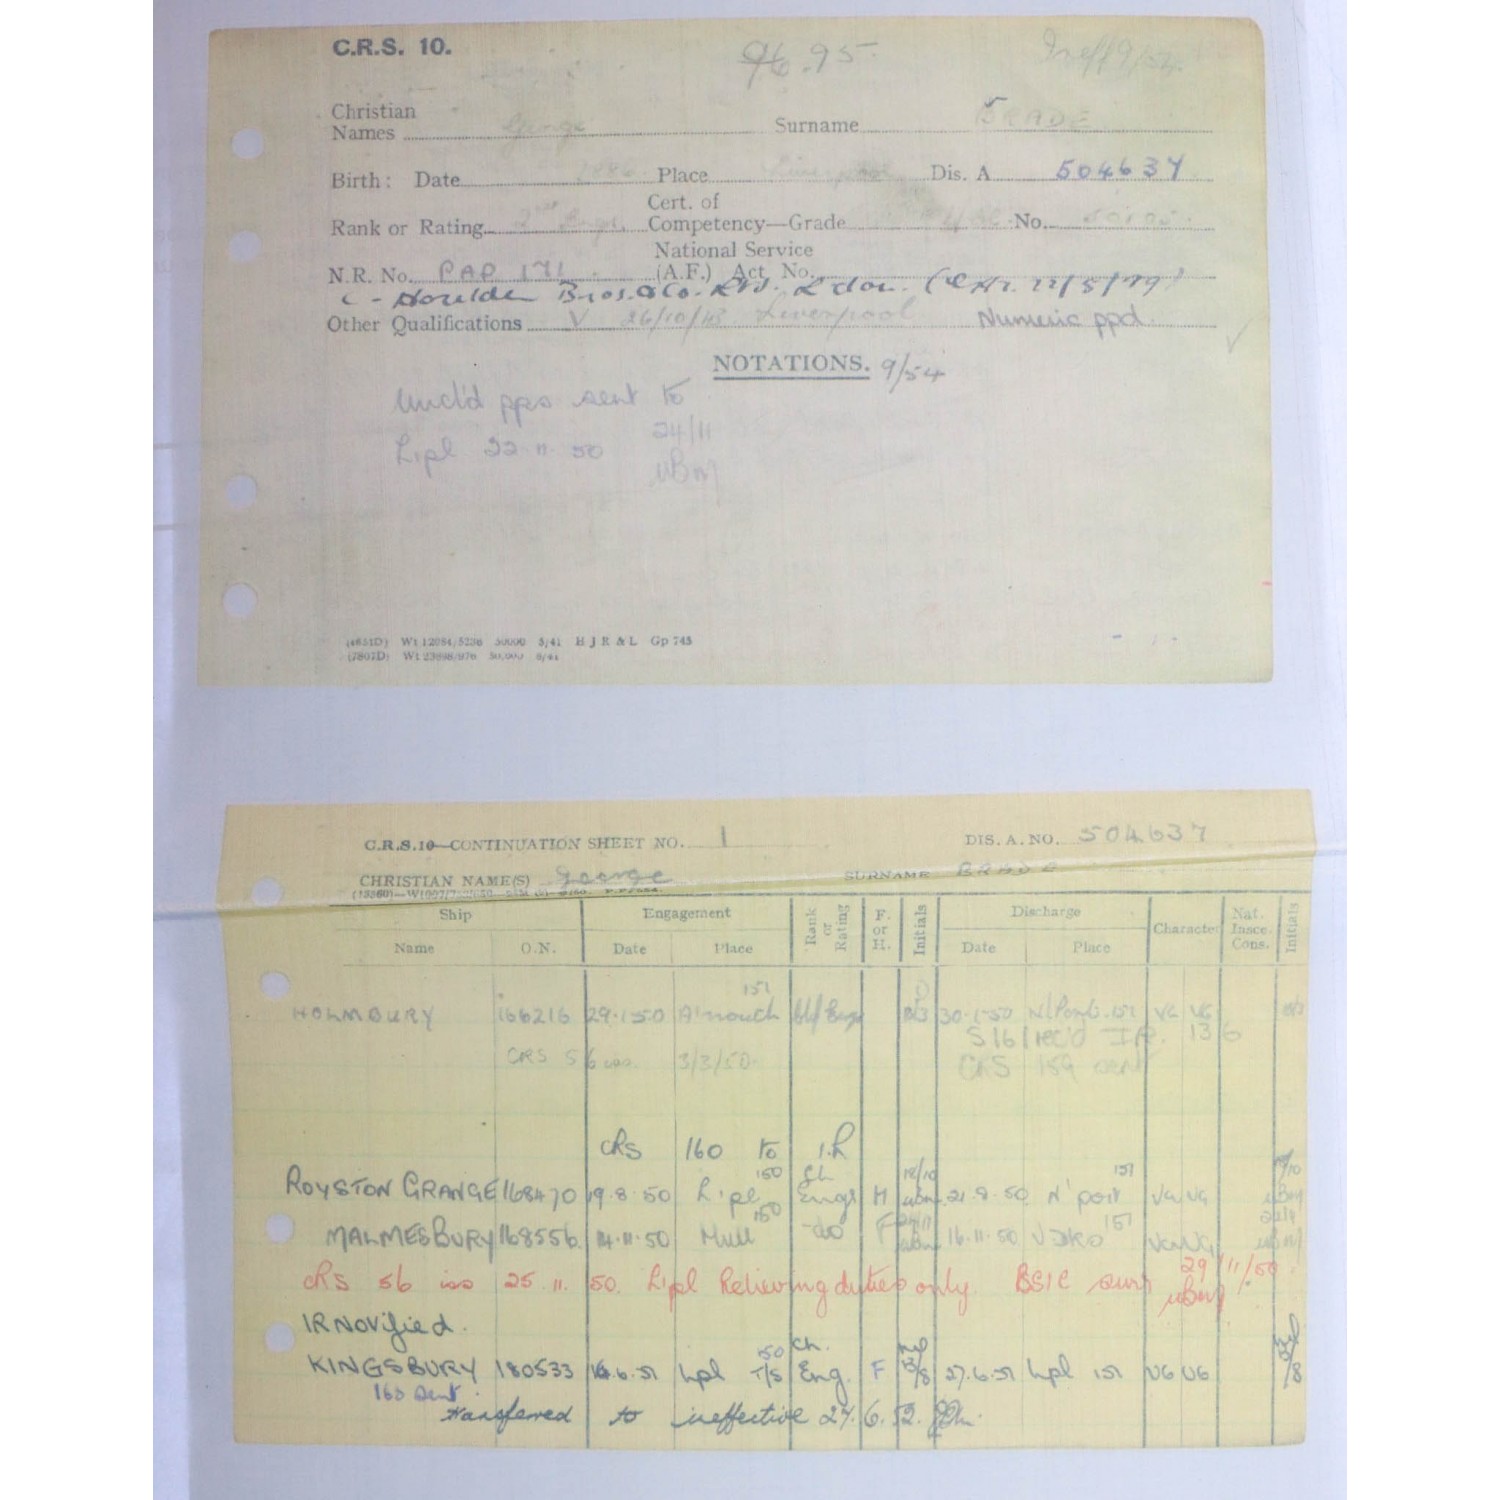 C.R.S. 10.
96.95 Ineff 9/54
Christian
Names George Surname BRADE
Birth: Date 1886 Place Liverpool Dis. A 504637
Cert. of
Rank or Rating 2nd Engr. Competency—Grade No. 50105.
National Service
N.R. No. PAP 171. (A.F.) Act No.
Houlder Bros. & Co. Ltd. Ldon.
Other Qualifications V 26/10/18 Liverpool Numeric ppd.
NOTATIONS. 9/54
Uncl'd pps sent to
Lipl 22.11.50 24/11
uBm
(4651D) Wt 12084/5236 50000 5/41 H J R & L Gp 745
(7807D) Wt 23898/976 50,000 8/41
C.R.S.10—CONTINUATION SHEET NO. 1 DIS. A. NO. 504637
CHRISTIAN NAME(S) George SURNAME BRADE
Ship Engagement Rank or Rating F. or H. Initials Discharge Character Nat. Insce. Cons. Initials
Name O.N. Date Place Date Place
HOLMBURY 166216 29.1.50 A'mouth 151 Engr 30.1.50 N'Port 151 VG VG
CRS 56 iss. 3/3/50 S161 rec'd I.R. 136
CRS 159 sent
CRS 160 to I.R
ROYSTON GRANGE 168470 19.8.50 L'pl 150 Ch Engr H 18/10 uBm 21.9.50 N'port 151 VG VG 18/10 uBm
MALMESBURY 168556 14.11.50 Hull 150 -do- F 24/11 uBm 16.11.50 151 VG VG 24/11 uBm
CRS 56 iss 25.11.50. Lipl Relieving duties only. BSIC surr 29/11/50 uBm
IR Novified.
KINGSBURY 180533 16.6.51 Lpl 150 T/S Ch. Eng. F 27.6.51 Lpl 151 VG VG
160 sent.
transferred to ineffective 27.6.52.